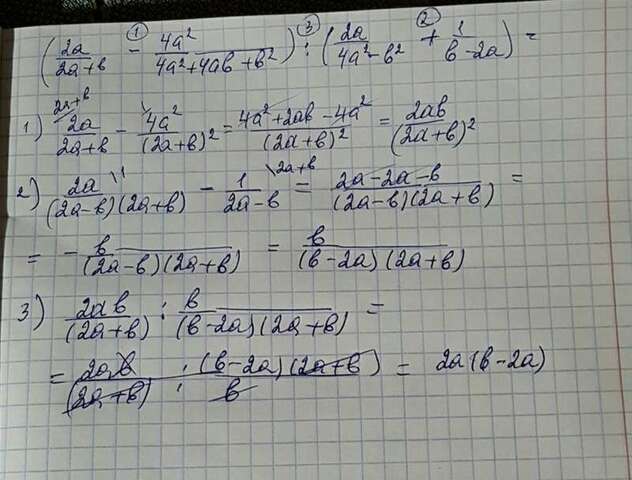 (2a/(2a+b) ①− 4a²/(4a²+4ab+b²)) ③: (2a/(4a²−b²) ②+ 1/(b−2a)) =
1) 2a\2a+b/(2a+b) − 4a²/(2a+b)² = (4a²+2ab−4a²)/(2a+b)² = 2ab/(2a+b)²
2) 2a\1/((2a−b)(2a+b)) − 1\2a+b/(2a−b) = (2a−2a−b)/((2a−b)(2a+b)) =
= −b/((2a−b)(2a+b)) = b/((b−2a)(2a+b))
3) 2ab/(2a+b) : b/((b−2a)(2a+b)) =
= 2ab/(2a+b) : (b−2a)(2a+b)/b = 2a(b−2a)